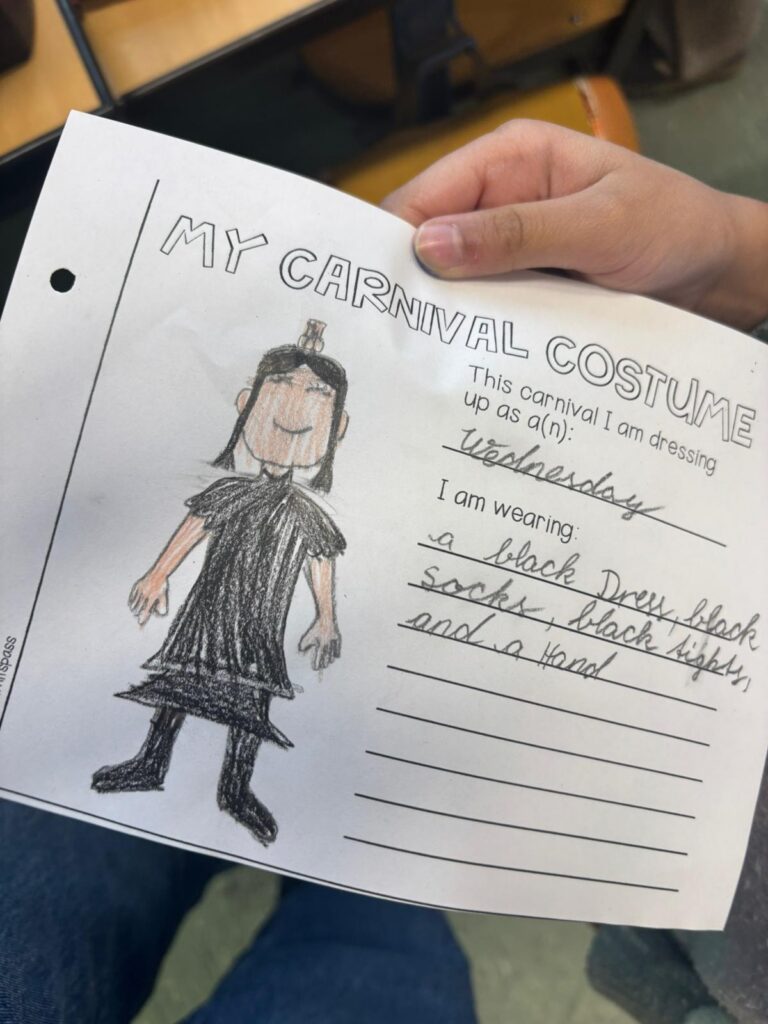 MY CARNIVAL COSTUME
This carnival I am dressing
up as a(n):
Wednesday
I am wearing:
a black Dress, black
socks, black tights,
and a Hand